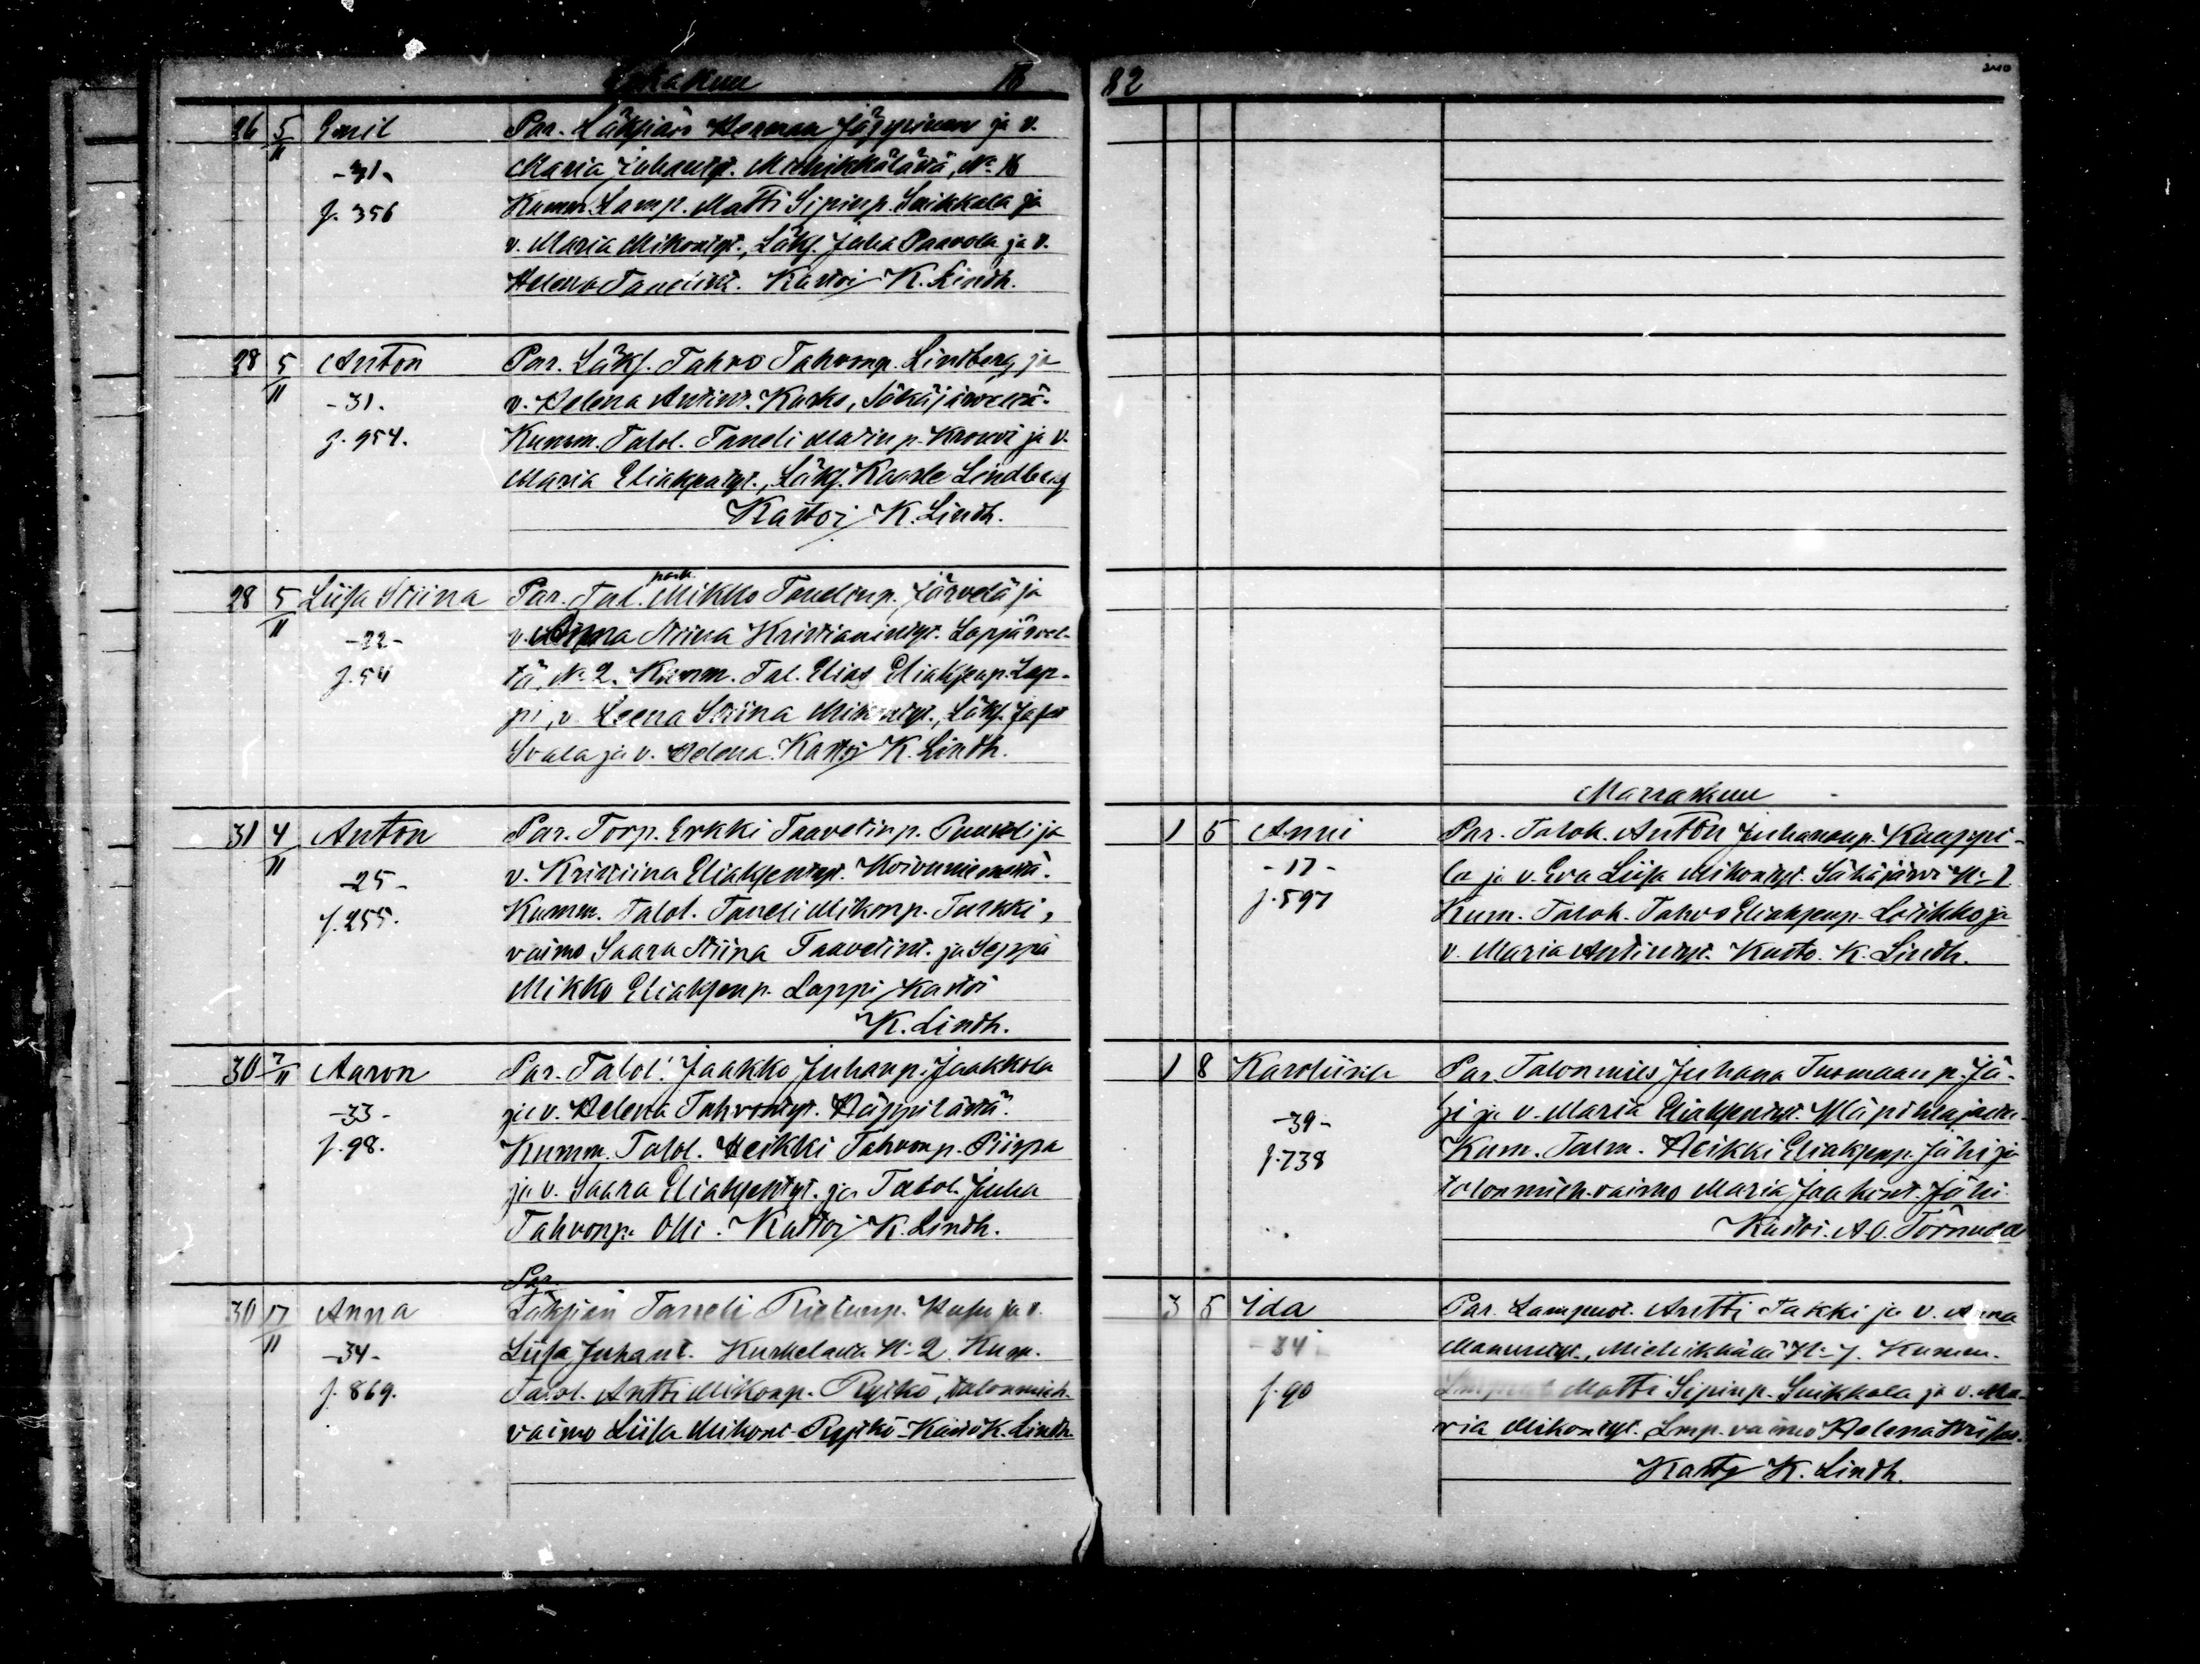 Lokakuu 18
26 5/11 Emil Par. Läksiäis Herman Jäppinen ja v.
-31- Maria Juhantyt. Miehikkälästä, No 16
f. 356 Kumm. Lamp. Matti Sipinp. Suikkala ja
v. Maria Mikontyt., Läks. Juha Paavola ja v.
Helena Tanelint. Kastoi K. Lindh.
28 5/11 Anton Par. Läks. Tahvo Tahvonp. Lindberg ja
-31. v. Helena Antint. Kasko, Säkäjärveltä.
f. 954. Kumm. Talol. Taneli Matinp. Krouvi ja v.
Maria Eliaksentyt., Läks. Kaarle Lindberg
Kastoi K. Lindh.
28 5/11 Liisa Stiina Par. Tal. poik. Mikko Tanelinp. Järvelä ja
-22- v. Anna Stiina Kristianintyt. Lapjärvel-
f. 54 tä, No 2. Kumm. Tal. Elias Eliaksenp. Lap-
pi, v. Leena Stiina Mikontyt., Läks. Jafet
Svala ja v. Helena. Kastoi K. Lindh.
31 4/11 Anton Par. Torp. Erkki Taavetinp. Puusti ja
-25- v. Kristiina Eliaksentyt. Koivuniemestä.
f. 255. Kumm. Talol. Taneli Mikonp. Turkki,
vaimo Saara Stiina Taavetint. ja Seppä
Mikko Eliaksenp. Lappi Kastoi
K. Lindh.
30 7/11 Aaron Par. Talol. Jaakko Juhanp. Jaakkola
-33- ja v. Helena Tahvontyt. Häppilästä.
f. 98. Kumm. Talol. Heikki Tahvonp. Piispa
ja v. Saara Eliaksentyt. ja Talol. Juha
Tahvonp. Olli. Kastoi K. Lindh.
Par.
30 17/11 Anna Läksiän Taneli Rietunp. Husu ja v.
-34- Liisa Juhant. Kurkelasta No 2. Kum.
f. 869. Talol. Antti Mikonp. Rypkö, talonmieh.
vaimo Liisa Mikont. Rypkö. Kasto K. Lindh.
82
Marraskuu
1 5 Anni Par. Talok. Anton Juhananp. Kauppi-
-17- la ja v. Eva Liisa Mikontyt. Säkäjärvi No 1.
f. 597 Kum. Talok. Tahvo Eliaksenp. Lotikko ja
v. Maria Antintyt. Kasto. K. Lindh.
1 8 Karoliina Par. Talonmies Juhana Tuomaanp. Jä-
-39- hi ja v. Maria Eliaksentyt.
f. 738 Kum. Talm. Heikki Eliaksenp. Jähi ja
talonmieh. vaimo Maria Jaakont. Jähi.
Kastoi. A. O. Törnudd
3 5 Ida Par. Lampuot. Antti Takki ja v. Anna
-34- Manuntyt., Miehikkälä No 7. Kumm.
f. 90 Lampuot. Matti Sipinp. Suikkala ja v. Ma-
ria Mikontyt. Lmp. vaimo Helena
Kasto K. Lindh.